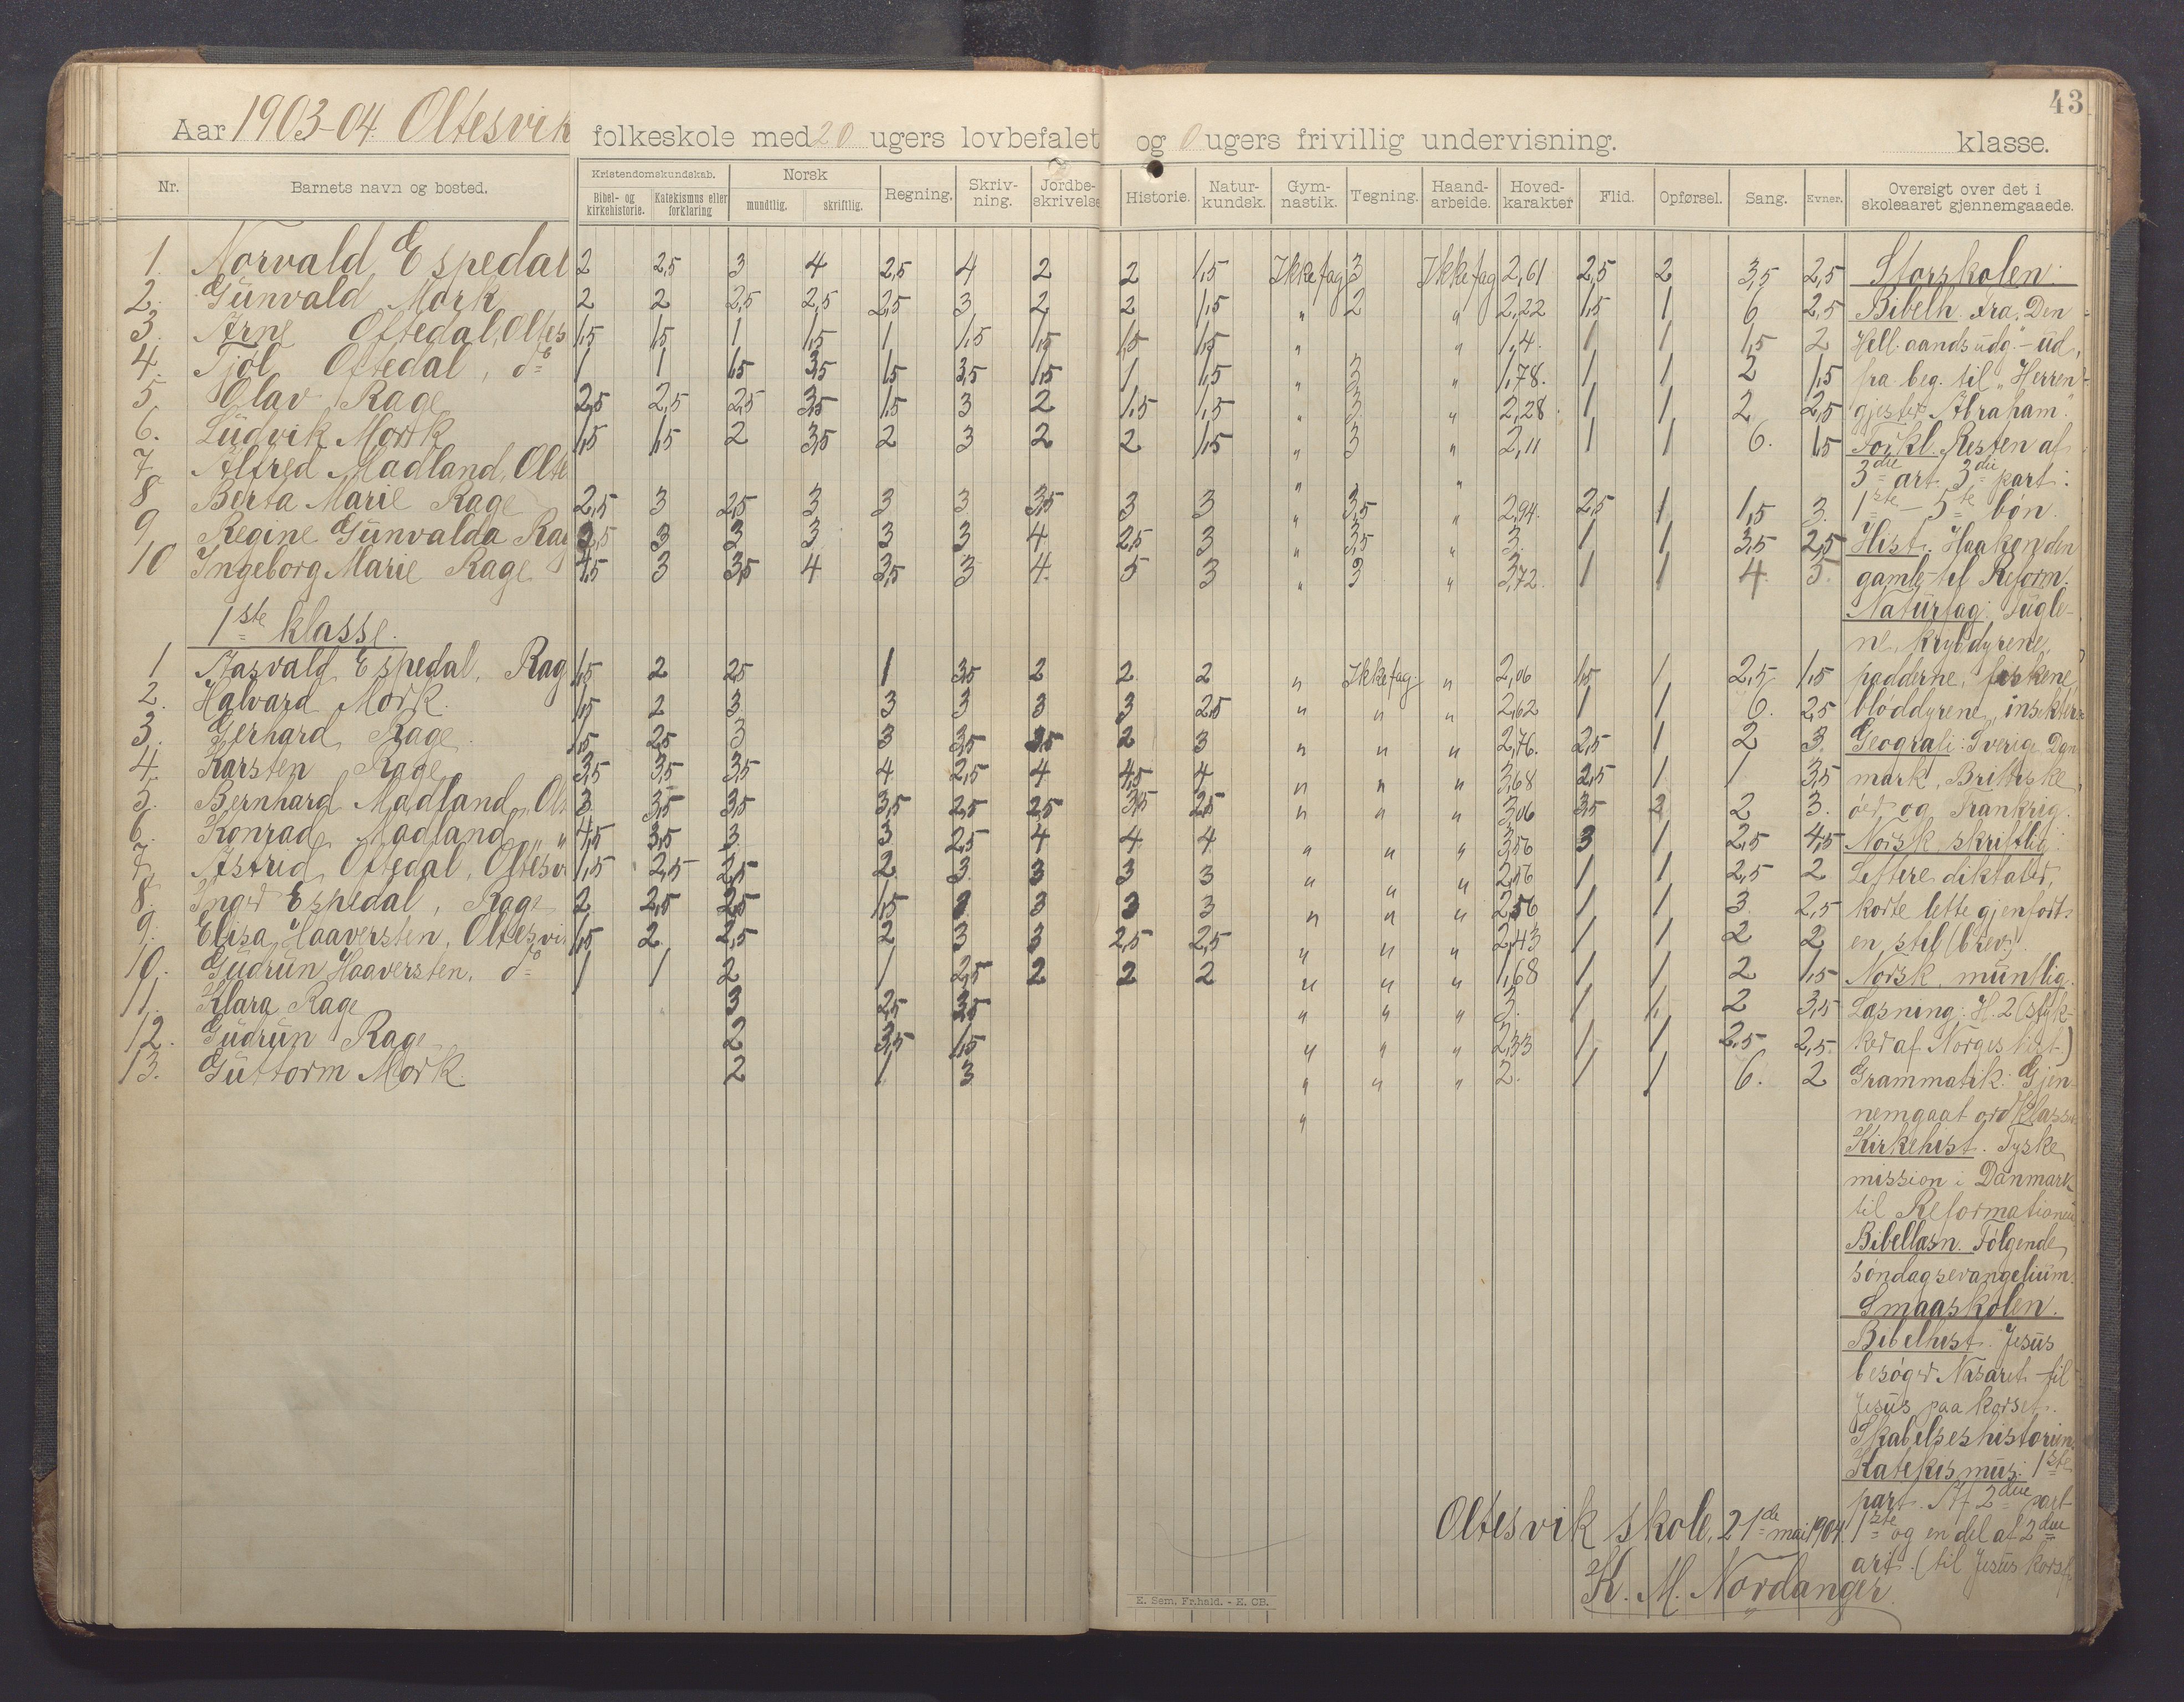 43
Aar 1903-04 Oltesvik folkeskole med 20 ugers lovbefalet og 0 ugers frivillig undervisning. klasse.
Nr. Barnets navn og bosted. Kristendomskundskab. Bibel- og kirkehistorie. Katekismus eller forklaring Norsk mundtlig. skriftlig. Regning. Skriv-ning. Jordbe-skrivelse Historie. Natur-kundsk. Gym-nastik. Tegning. Haand-arbeide. Hoved-karakter Flid. Opførsel. Sang. Evner. Oversigt over det i skoleaaret gjennemgaaede.
1. Norvald Espedal 2 2,5 3 4 2,5 4 2 2 1,5 Ikke fag 3 Ikke fag 2,61 2,5 2 3,5 2,5 Storskolen:
2. Gunvald Mork 2 2 2,5 2,5 2,5 3 2 2 1,5 " 2 " 2,22 1,5 1 6 2,5 Bibelh. fra "Den
3. Arne Oftedal, Oltes 1,5 1,5 1 1,5 1 1,5 1,5 1,5 1,5 " " 1,4. 1 1 1,5 2 Hell. aands udg." - ud,
4. Tjøl Oftedal, do 1 1 1,5 3,5 1,5 3,5 1,5 1 1,5 " 3 " 1,78. 1 1 2 1,5 fra beg. til "Herren
5 Olav Rage 2,5 2,5 2,5 3,5 1,5 3 2 1,5 1,5 " 3 " 2,28. 1 1 2 2,5 gjester Abraham."
6. Ludvik Mork 1,5 1,5 2 3,5 2 3 2 2 1,5 " 3 " 2,11 1 1 6. 1,5 Forkl. Resten af
7 Alfred Madland, Olte " " 3die art. 3die part:
8 Berta Marie Rage 2,5 3 2,5 3 3 3 3,5 3 3 " 3,5 " 2,94. 2,5 1 1,5 3. 1ste - 5te bøn.
9 Regine Gunvalda Rag 2,5 3 3 3 3 3 4 2,5 3 " 3,5 " 3. 1 1 3,5 2,5 Hist. Haakon den
10 Ingeborg Marie Rage 4,5 3 3,5 4 3,5 3 4. 5 3 " 3 " 3,72. 1 1 4. 5. gamle - til Reform.
Naturfag: Fugle-
1ste klasse. ne, krybdyrene,
1 Aasvald Espedal, Rag 1,5 2 2,5 1 3,5 2 2 2 " Ikke fag. " 2,06 1,5 1 2,5 1,5 padderne, fiskene,
2. Halvard Mork. 1,5 2 3 3 3 3 3 2,5 " " " 2,62 1 1 6. 2,5 bløddyrene, insekterne
3. Gerhard Rage 1,5 2,5 3 3 3,5 3,5 2 3 " " " 2,76. 2,5 1 2 3. Geografi: Sverige, Dan
4. Karsten Rage 3,5 3,5 3,5 4 2,5 4 4,5 4 " " " 3,68 2,5 1 1 3,5 mark, Britiske
5. Bernhard Madland, Olt 3 3,5 3,5 3,5 2,5 2,5 3,5 2,5 " " " 3,06 3,5 2 2 3. øer og Frankrig.
6. Konrad Madland " " 4,5 3,5 3. 3 2,5 4 4 4 " " " 3,56 3 1 2,5 4,5 Norsk skriftlig:
7. Astrid Oftedal, Oltesvi 1,5 2,5 2,5 2 3 3 3 3 " " " 2,56 1 1 2,5 2 Lettere diktater,
8. Inger Espedal, Rage 2 2,5 2,5 1,5 3 3 3 3 " " " 2,56 1 1 3 2,5 korte lette gjenfort.
9. Elisa Haaversten, Oltesvi 1,5 2 2,5 2 3 3 2,5 2,5 " " " 2,43 1 1 2 2 en stil (brev).
10. Gudrun Haaversten, do 1 1 2 1 2,5 2 2 2 " " " 1,68 1 1 2 1,5 Norsk, muntlig.
11. Klara Rage 3 2,5 3,5 " " " 3. 1 1 2 3,5 Læsning: H. 2 (styk-
12. Gudrun Rage 2 3,5 1,5 " " " 2,33 1 1 2,5 2,5 ker af Norges hist.)
13. Guttorm Mork. 2 1 3 " " " 2. 1 1 6. 2 Grammatik: Gjen-
" nemgaat ordklass.
Kirkehist. Tyske
mission i Danmark
til Reformationen
Bibellæsn. Følgende
søndagsevangelium.
Smaaskolen.
Bibelhist. Jesus
besøger Nasaret - til
Jesus paa korset.
Skabelseshistorien.
Katekismus: 1ste
part. Af 2den part
1ste og en del af 2den
art. (til Jesus korsf
Oltesvik skole, 21de mai 1904.
K. M. Nordanger
E. Sem, Fr.hald. - E. OB.